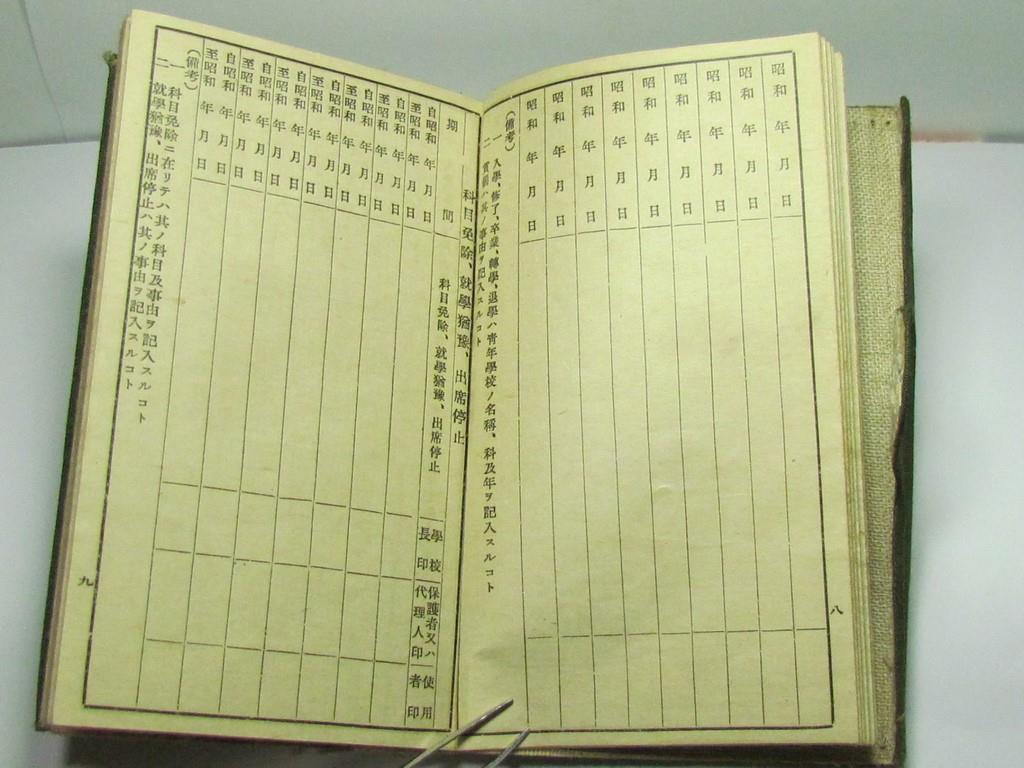 昭和 年 月 日
昭和 年 月 日
昭和 年 月 日
昭和 年 月 日
昭和 年 月 日
昭和 年 月 日
昭和 年 月 日
昭和 年 月 日
(備考)
一 入學、修了、卒業、轉學、退學ハ靑年學校ノ名稱、科及年ヲ記入スルコト
二 賞罰ハ其ノ事由ヲ記入スルコト
八
科目免除、就學猶豫、出席停止
期間
科目免除、就學猶豫、出席停止
學校長印
保護者又ハ代理人印
使用者印
自昭和 年 月 日
至昭和 年 月 日
自昭和 年 月 日
至昭和 年 月 日
自昭和 年 月 日
至昭和 年 月 日
自昭和 年 月 日
至昭和 年 月 日
自昭和 年 月 日
至昭和 年 月 日
自昭和 年 月 日
至昭和 年 月 日
自昭和 年 月 日
至昭和 年 月 日
(備考)
一 科目免除ニ在リテハ其ノ科目及事由ヲ記入スルコト
二 就學猶豫、出席停止ハ其ノ事由ヲ記入スルコト
九